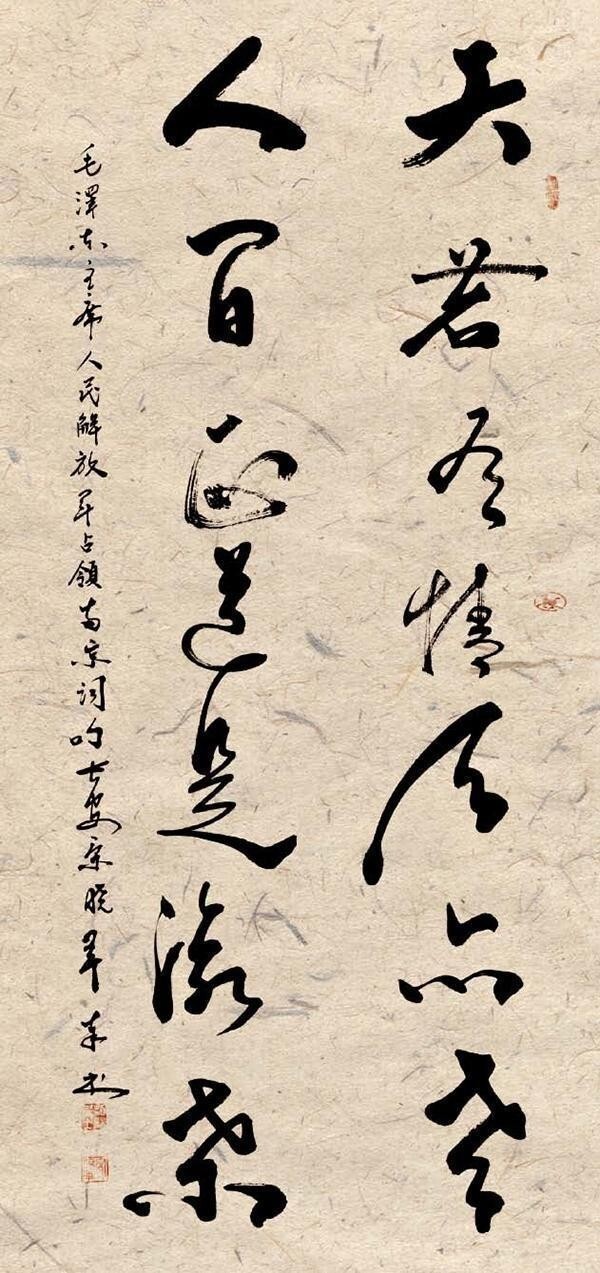 天若有情天亦老
人间正道是沧桑
毛澤东主席人民解放军占領南京词句 晓军书